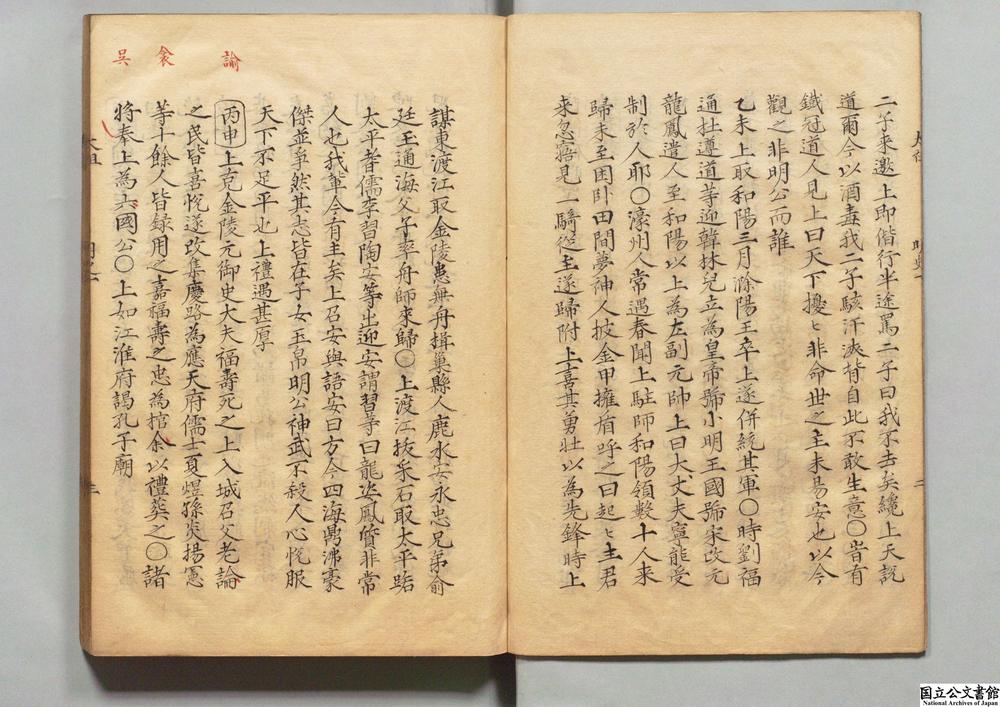 二子来邀上即偕行半途罵二子曰我不去矣纔上天說
道爾今以酒毒我二子駭汗浹背自此不敢生意〇嘗有
鐵冠道人見上曰天下擾〻非命世之主未易安也以今
觀之非明公而誰
乙未上取和陽三月滁陽王卒上遂併統其軍〇時劉福
通杜遵道等迎韓林兒立為皇帝號小明王國號宋改元
龍鳳遣人至和陽以上為左副元帥上曰大丈夫寧能受
制於人耶〇濠州人常遇春聞上駐師和陽領數十人来
歸未至困卧田間夢神人披金甲擁盾呼之曰起〻主君
来忽寤見一騎從至遂歸附上喜其勇壯以為先鋒時上
謀東渡江取金陵患無舟揖巢縣人鹿水安永忠兄弟俞
廷玉通海父子率舟師來歸〇上渡江抜采石取太平路
太平耆儒李習陶安等出迎安謂習等曰龍姿鳳質非常
人也我輩今有主矣上召安與語安曰方今四海鼎沸豪
傑並爭然其志皆在子女玉帛明公神武不殺人心悅服
天下不足平也上禮遇甚厚
丙申上克金陵元御史大夫福壽死之上入城召父老論
之民皆喜悅遂改集慶路為應天府儒士夏煜孫炎揚憲
等十餘人皆録用之嘉福壽之忠為棺余以禮葬之〇諸
将奉上為六國公〇上如江淮府謁孔子廟
諭
衾
吳
国立公文書館
National Archives of Japan